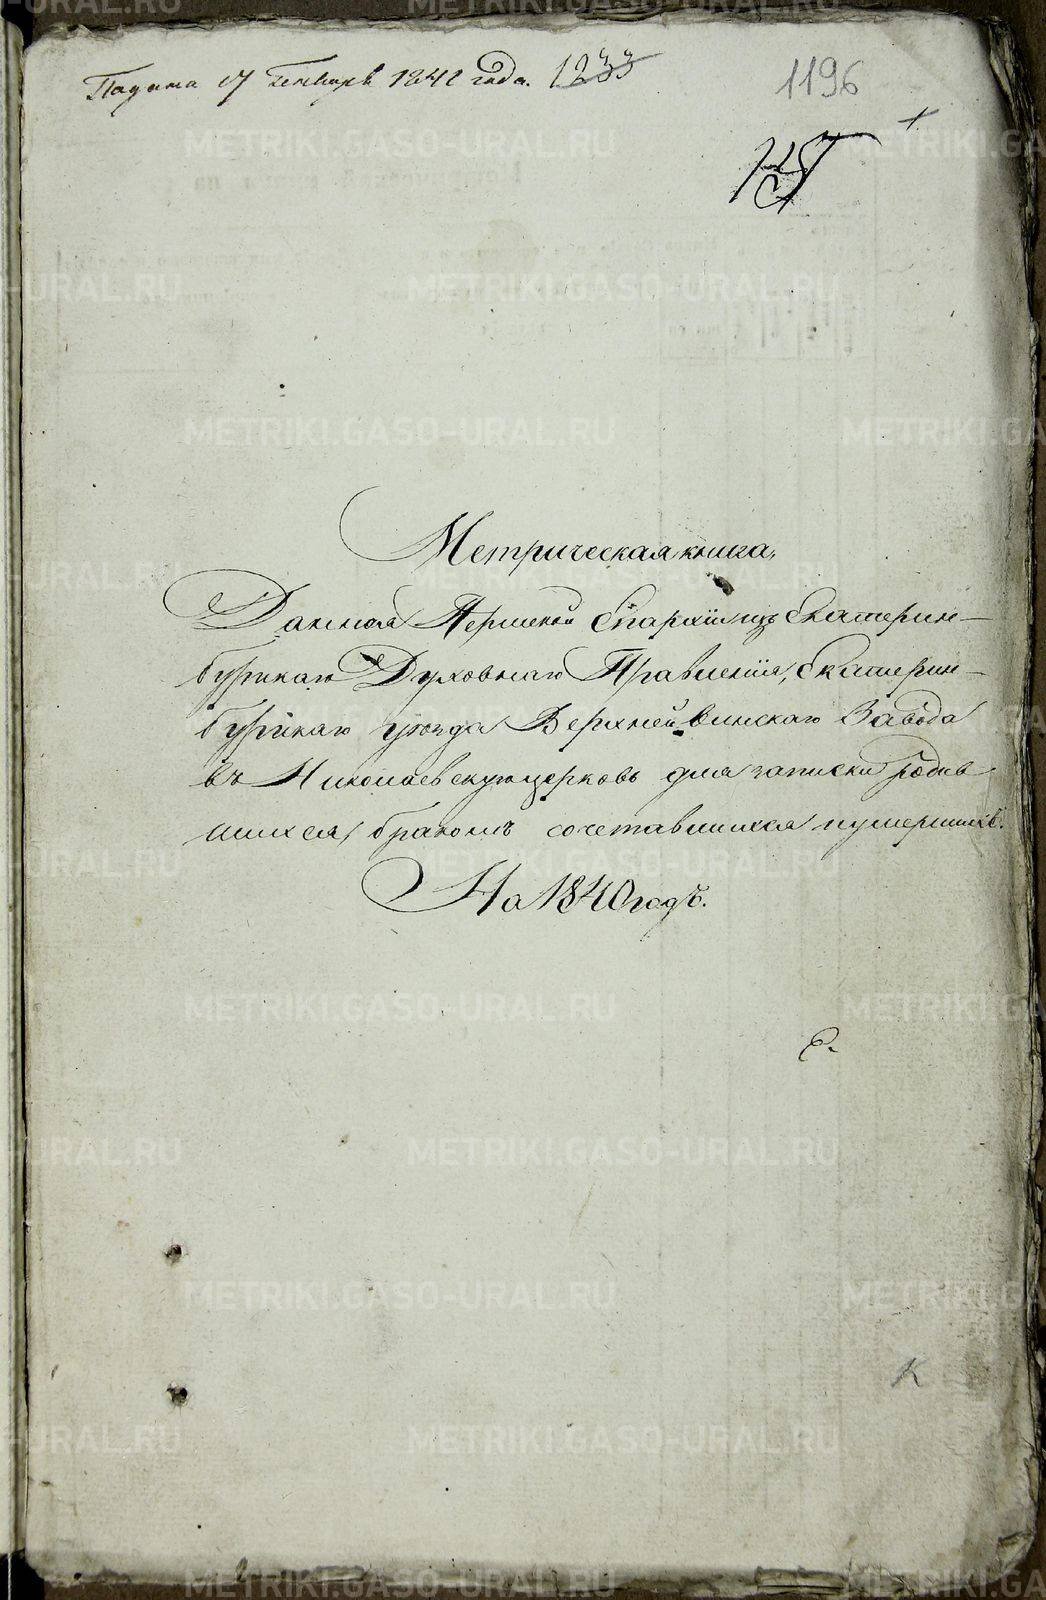 Подана 17 Генваря 1841 года. 1233
1196
Метрическая книга,
Данная Пермской Епархіи изъ Екатерин-
бургскаго Духовнаго Правленія, Екатерин-
бургскаго уѣзда Верхнейвинскаго Завода
въ Николаевскую церковь для записки родив
шихся, бракомъ сочетавшихся и умершихъ.
На 1840 годъ.
К
METRIKI.GASO-URAL.RU